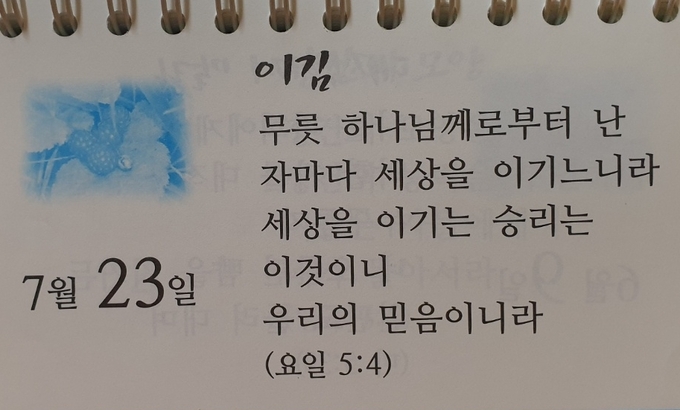 이김
무릇 하나님께로부터 난
자마다 세상을 이기느니라
세상을 이기는 승리는
이것이니
우리의 믿음이니라
(요일 5:4)
7월 23일